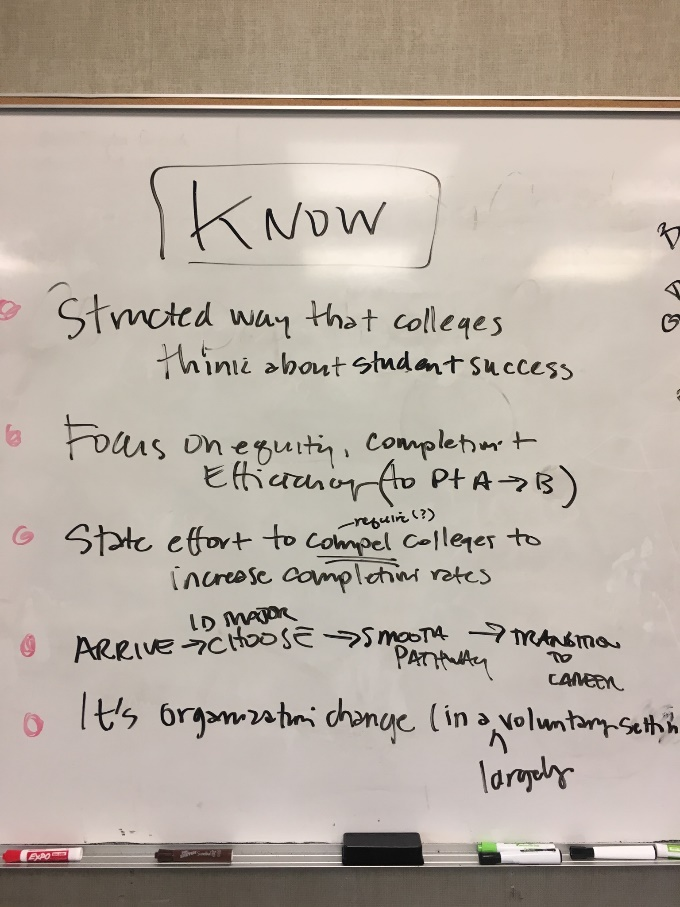 KNOW
Structed way that colleges
think about student success
Focus on equity, completion +
Efficiency (to Pt A → B)
require (?)
State effort to compel colleges to
increase completion rates
ID MAJOR
ARRIVE → CHOOSE → SMOOTH → TRANSITION
PATHWAY TO
CAREER
It's organization change (in a voluntary settin
largely
EXPO